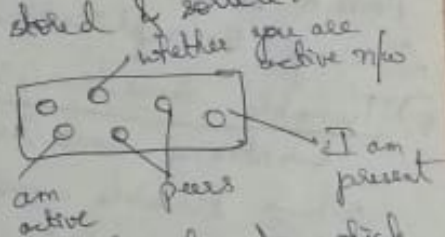 stored &
whether you are
active n/w
I am
present
am
active
peers
which